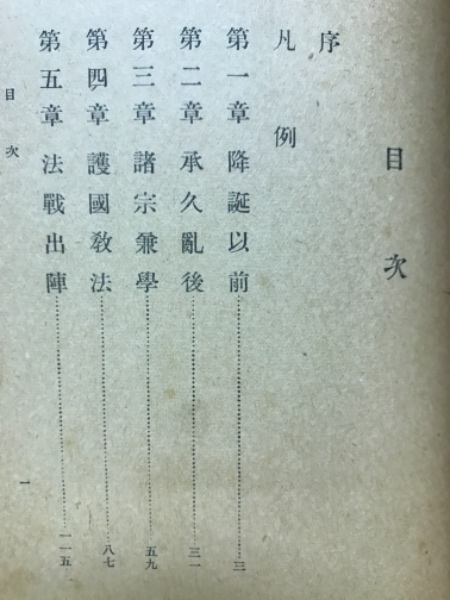 目次
序
凡例
第一章 降誕以前……三
第二章 承久亂後……三一
第三章 諸宗兼學……五九
第四章 護國敎法……八七
第五章 法戰出陣……一一五
目次
一